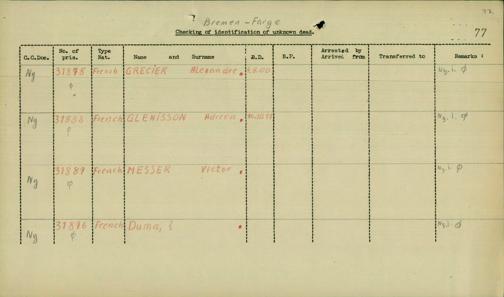 72.
? Bremen - Farge
Checking of identification of unknown dead.
77
C.C.Doc. No. of pris. Type Nat. Name and Surname B.D. B.P. Arrested by Arrived from Transferred to Remarks
Ny 31878 French GRECIER Alexandre.
Ny 31888 French GLENISSON
Ny 31889 French MESSER Victor
Ny 31896 French Duma,